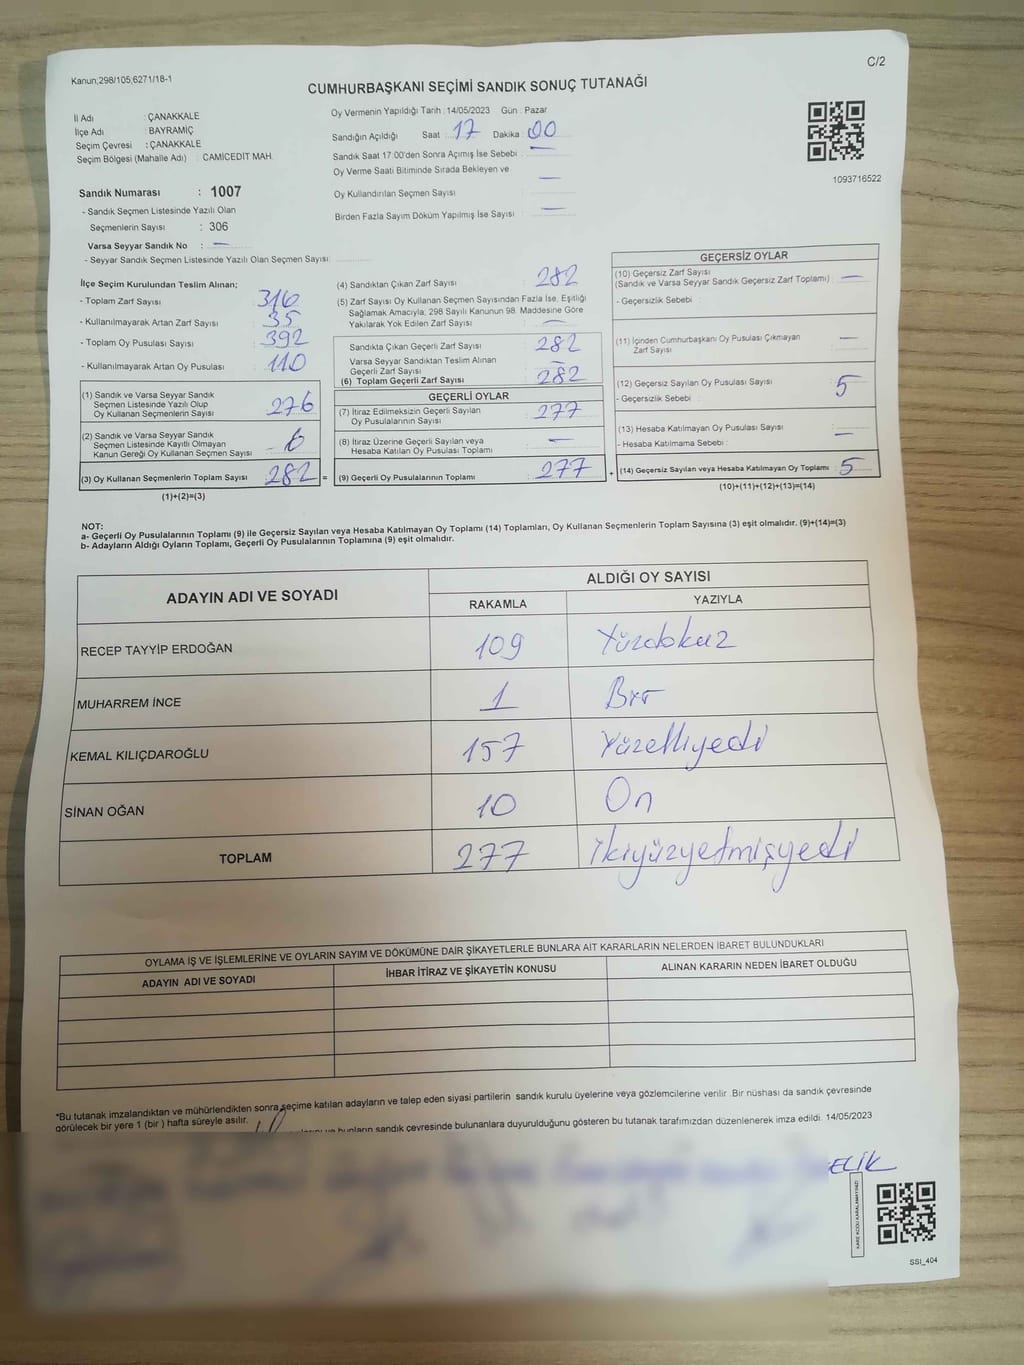 Kanun;298/105;6271/18-1
C/2
CUMHURBAŞKANI SEÇİMİ SANDIK SONUÇ TUTANAĞI
İl Adı : ÇANAKKALE
İlçe Adı : BAYRAMİÇ
Seçim Çevresi : ÇANAKKALE
Seçim Bölgesi (Mahalle Adı) : CAMİCEDİT MAH.
Sandık Numarası : 1007
- Sandık Seçmen Listesinde Yazılı Olan
Seçmenlerin Sayısı : 306
Varsa Seyyar Sandık No : —
- Seyyar Sandık Seçmen Listesinde Yazılı Olan Seçmen Sayısı:
Oy Vermenin Yapıldığı Tarih : 14/05/2023 Gün : Pazar
Sandığın Açıldığı Saat : 17 Dakika : 00
Sandık Saat 17:00'den Sonra Açımış İse Sebebi : —
Oy Verme Saati Bitiminde Sırada Bekleyen ve
Oy Kullandırılan Seçmen Sayısı : —
Birden Fazla Sayım Döküm Yapılmış İse Sayısı : —
1093716522
İlçe Seçim Kurulundan Teslim Alınan;
- Toplam Zarf Sayısı : 316
- Kullanılmayarak Artan Zarf Sayısı : 35
- Toplam Oy Pusulası Sayısı : 392
- Kullanılmayarak Artan Oy Pusulası : 110
(1) Sandık ve Varsa Seyyar Sandık
Seçmen Listesinde Yazılı Olup
Oy Kullanan Seçmenlerin Sayısı : 276
(2) Sandık ve Varsa Seyyar Sandık
Seçmen Listesinde Kayıtlı Olmayan
Kanun Gereği Oy Kullanan Seçmen Sayısı : 6
(3) Oy Kullanan Seçmenlerin Toplam Sayısı : 282 =
(1)+(2)=(3)
(4) Sandıktan Çıkan Zarf Sayısı : 282
(5) Zarf Sayısı Oy Kullanan Seçmen Sayısından Fazla İse, Eşitliği
Sağlamak Amacıyla, 298 Sayılı Kanunun 98. Maddesine Göre
Yakılarak Yok Edilen Zarf Sayısı : —
Sandıkta Çıkan Geçerli Zarf Sayısı : 282
Varsa Seyyar Sandıktan Teslim Alınan
Geçerli Zarf Sayısı : —
(6) Toplam Geçerli Zarf Sayısı : 282
GEÇERLİ OYLAR
(7) İtiraz Edilmeksizin Geçerli Sayılan
Oy Pusulasının Sayısı : 277
(8) İtiraz Üzerine Geçerli Sayılan veya
Hesaba Katılan Oy Pusulası Toplamı : —
(9) Geçerli Oy Pusulalarının Toplamı : 277 +
GEÇERSİZ OYLAR
(10) Geçersiz Zarf Sayısı
(Sandık ve Varsa Seyyar Sandık Geçersiz Zarf Toplamı) : —
- Geçersizlik Sebebi :
(11) İçinden Cumhurbaşkanı Oy Pusulası Çıkmayan
Zarf Sayısı : —
(12) Geçersiz Sayılan Oy Pusulası Sayısı : 5
- Geçersizlik Sebebi :
(13) Hesaba Katılmayan Oy Pusulası Sayısı : —
- Hesaba Katılmama Sebebi :
(14) Geçersiz Sayılan veya Hesaba Katılmayan Oy Toplamı : 5
(10)+(11)+(12)+(13)=(14)
NOT:
a- Geçerli Oy Pusulalarının Toplamı (9) ile Geçersiz Sayılan veya Hesaba Katılmayan Oy Toplamı (14) Toplamları, Oy Kullanan Seçmenlerin Toplam Sayısına (3) eşit olmalıdır. (9)+(14)=(3)
b- Adayların Aldığı Oyların Toplamı, Geçerli Oy Pusulalarının Toplamına (9) eşit olmalıdır.
ADAYIN ADI VE SOYADI
ALDIĞI OY SAYISI
RAKAMLA YAZIYLA
RECEP TAYYİP ERDOĞAN 109 Yüzdokuz
MUHARREM İNCE 1 Bir
KEMAL KILIÇDAROĞLU 157 Yüzelliyedi
SİNAN OĞAN 10 On
TOPLAM 277 ikiyüzyetmişyedi
OYLAMA İŞ VE İŞLEMLERİNE VE OYLARIN SAYIM VE DÖKÜMÜNE DAİR ŞİKAYETLERLE BUNLARA AİT KARARLARIN NELERDEN İBARET BULUNDUKLARI
ADAYIN ADI VE SOYADI İHBAR İTİRAZ VE ŞİKAYETİN KONUSU ALINAN KARARIN NEDEN İBARET OLDUĞU
*Bu tutanak imzalandıktan ve mühürlendikten sonra seçime katılan adayların ve talep eden siyasi partilerin sandık kurulu üyelerine veya gözlemcilerine verilir. Bir nüshası da sandık çevresinde
görülecek bir yere 1 (bir ) hafta süreyle asılır.
bunların sandık çevresinde bulunanlara duyurulduğunu gösteren bu tutanak tarafımızdan düzenlenerek imza edildi. 14/05/2023
ELİK
KARE KODU KARALAMAYINIZ!
SSI_404